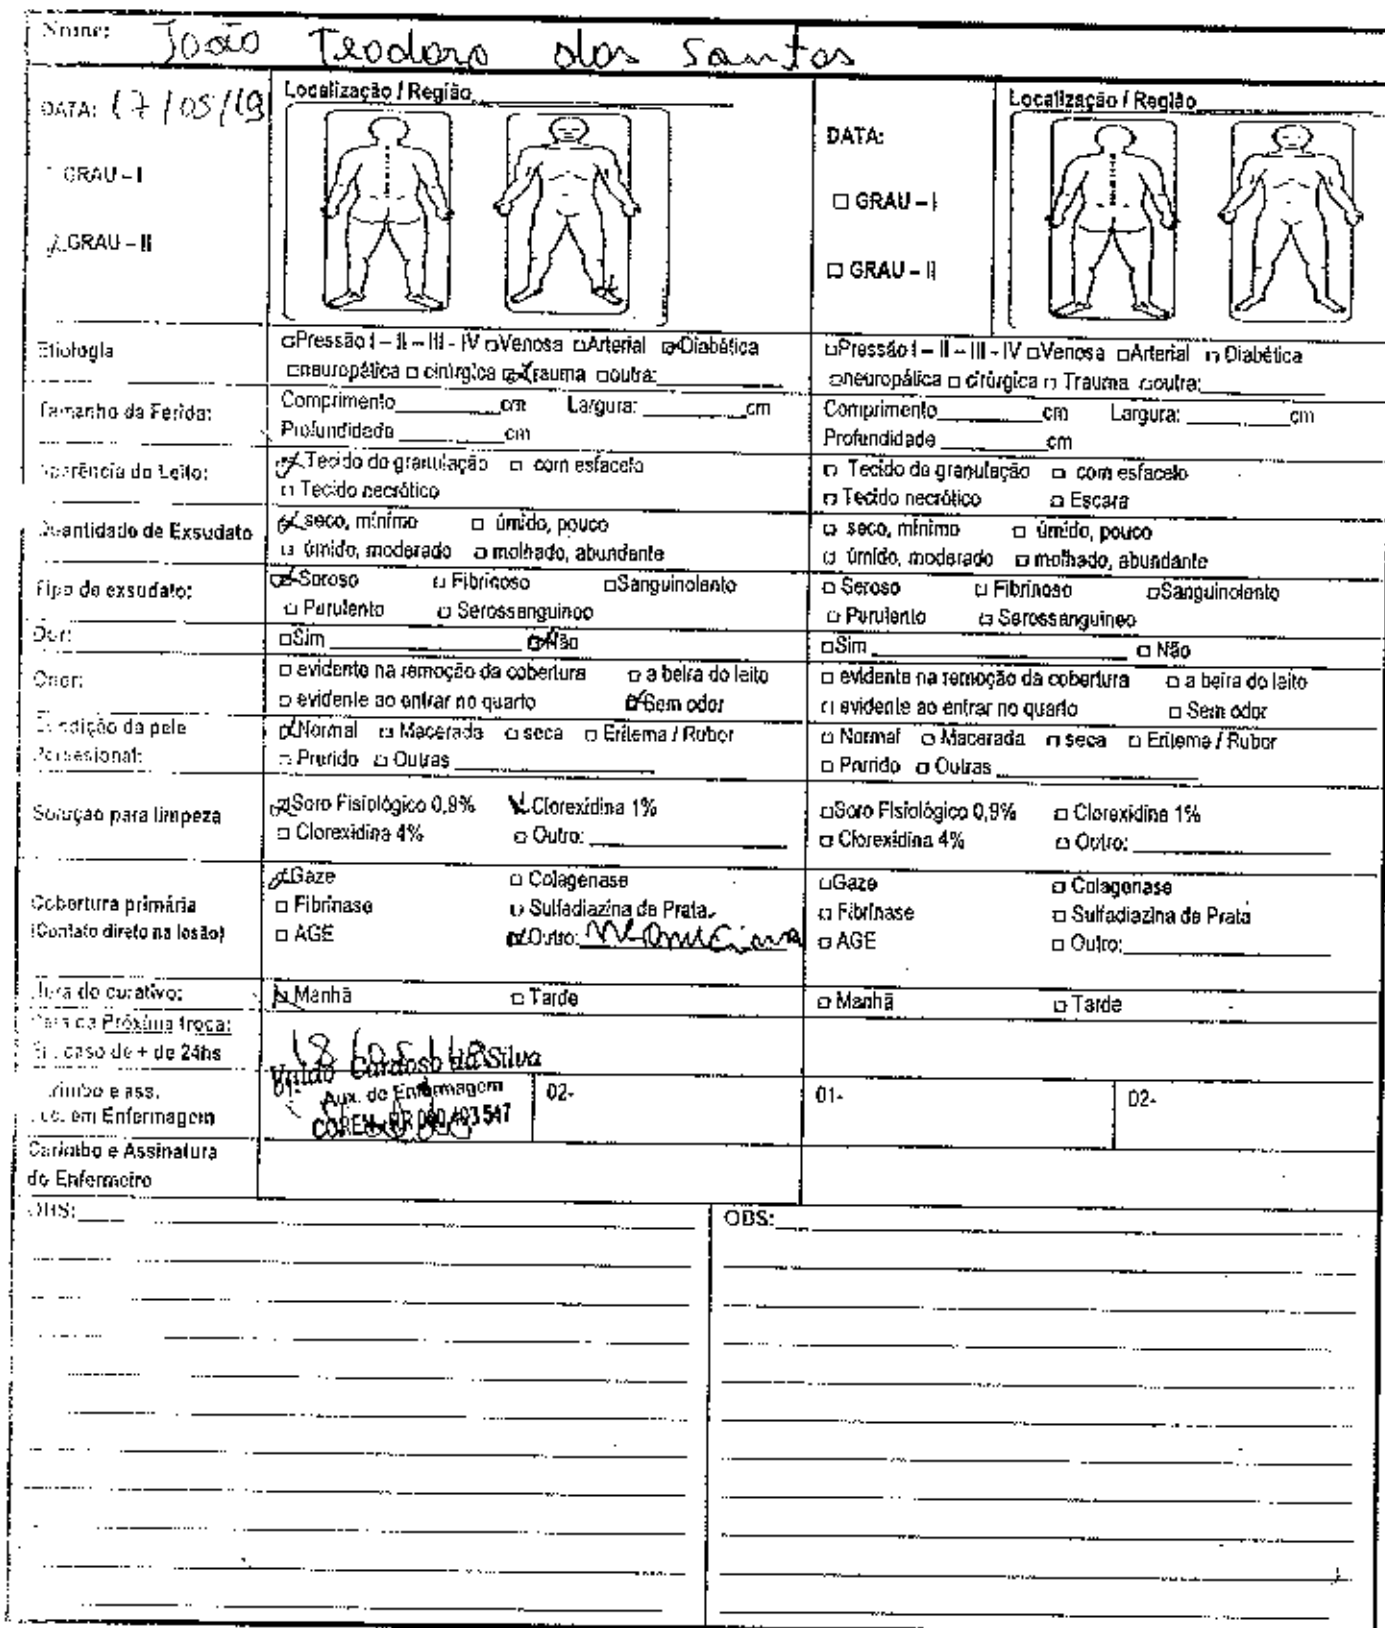 Nome: João Teodoro dos Santos
DATA: 17/05/19
GRAU – I
GRAU – II
Localização / Região
DATA:
GRAU – I
GRAU – II
Localização / Região
Etiologia
Pressão I – II – III - IV Venosa Arterial Diabética
neuropática cirúrgica Trauma outra:
Pressão I – II – III - IV Venosa Arterial Diabética
neuropática cirúrgica Trauma outra:
Tamanho da Ferida:
Comprimento cm Largura: cm
Profundidade cm
Comprimento cm Largura: cm
Profundidade cm
Aparência do Leito:
Tecido de granulação com esfacelo
Tecido necrótico
Tecido de granulação com esfacelo
Tecido necrótico Escara
Quantidade de Exsudato
seco, mínimo úmido, pouco
úmido, moderado molhado, abundante
seco, mínimo úmido, pouco
úmido, moderado molhado, abundante
Tipo de exsudato:
Seroso Fibrinoso Sanguinolento
Purulento Serossanguineo
Seroso Fibrinoso Sanguinolento
Purulento Serossanguineo
Dor:
Sim Não
Sim Não
Odor:
evidente na remoção da cobertura a beira do leito
evidente ao entrar no quarto Sem odor
evidente na remoção da cobertura a beira do leito
evidente ao entrar no quarto Sem odor
Condição da pele
Perilesional:
Normal Macerada seca Eritema / Rubor
Prurido Outras
Normal Macerada seca Eritema / Rubor
Prurido Outras
Solução para limpeza
Soro Fisiológico 0,9% Clorexidina 1%
Clorexidina 4% Outro:
Soro Fisiológico 0,9% Clorexidina 1%
Clorexidina 4% Outro:
Cobertura primária
(Contato direto na lesão)
Gaze Colagenase
Fibrinase Sulfadiazina de Prata
AGE Outro:
Gaze Colagenase
Fibrinase Sulfadiazina de Prata
AGE Outro:
Hora do curativo:
Manhã Tarde
Manhã Tarde
Data da Próxima troca:
Em caso de + de 24hs
18/05/19
Carimbo e ass.
Téc. em Enfermagem
Cardoso da Silva
Aux. de Enfermagem
COREN-RR
02-
01-
02-
Carimbo e Assinatura
do Enfermeiro
OBS:
OBS: